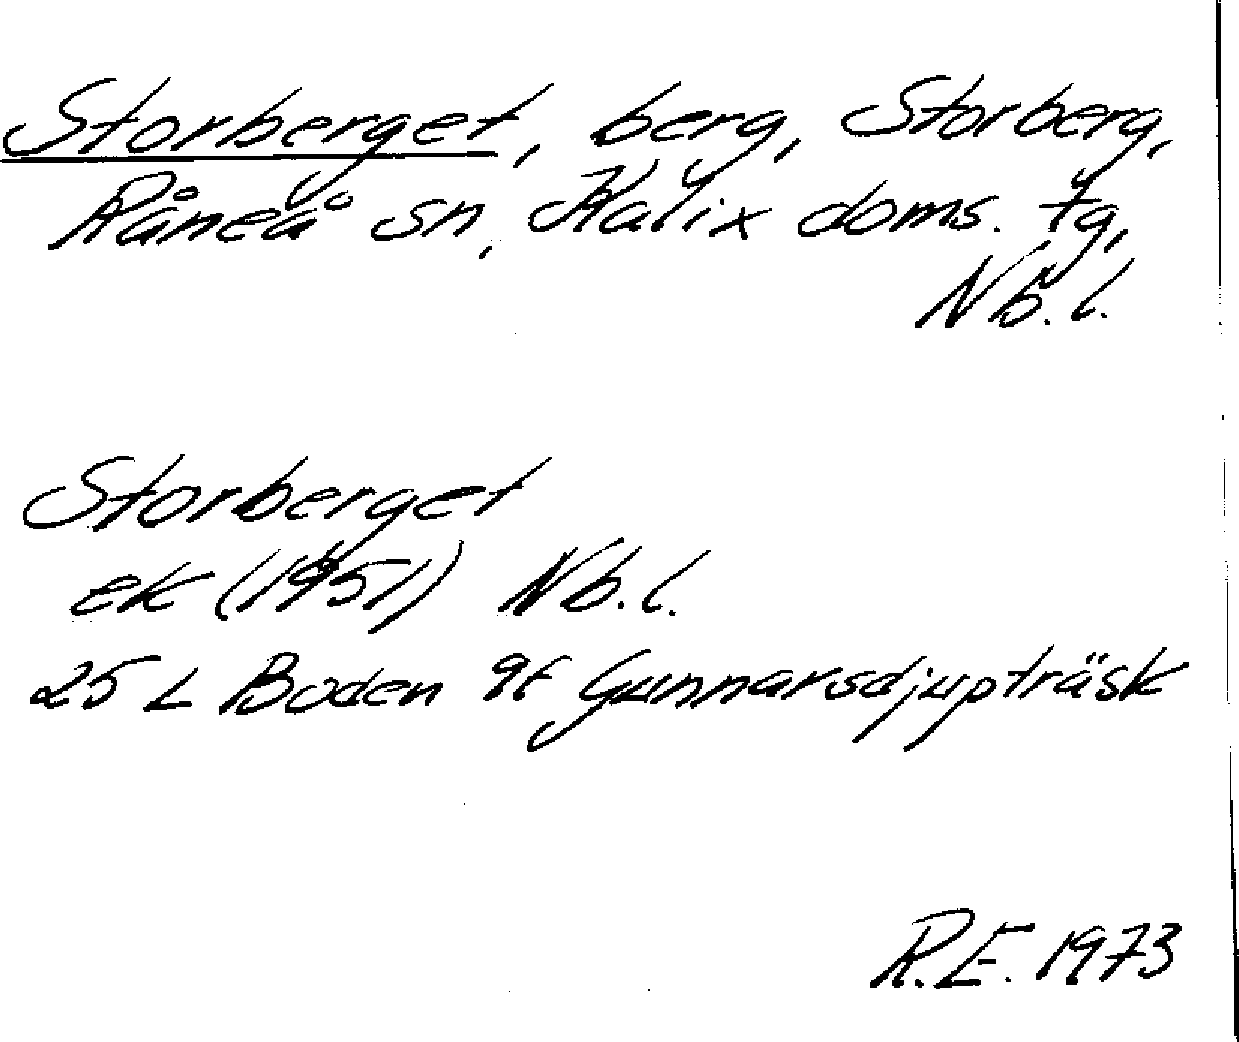 Storberget, berg, Storberg,
Råneå sn, Kalix doms. tg,
Nb. l.
Storberget
ek (1951) Nb. l.
25 L Boden 9f Gunnarsdjupträsk
R.E. 1973